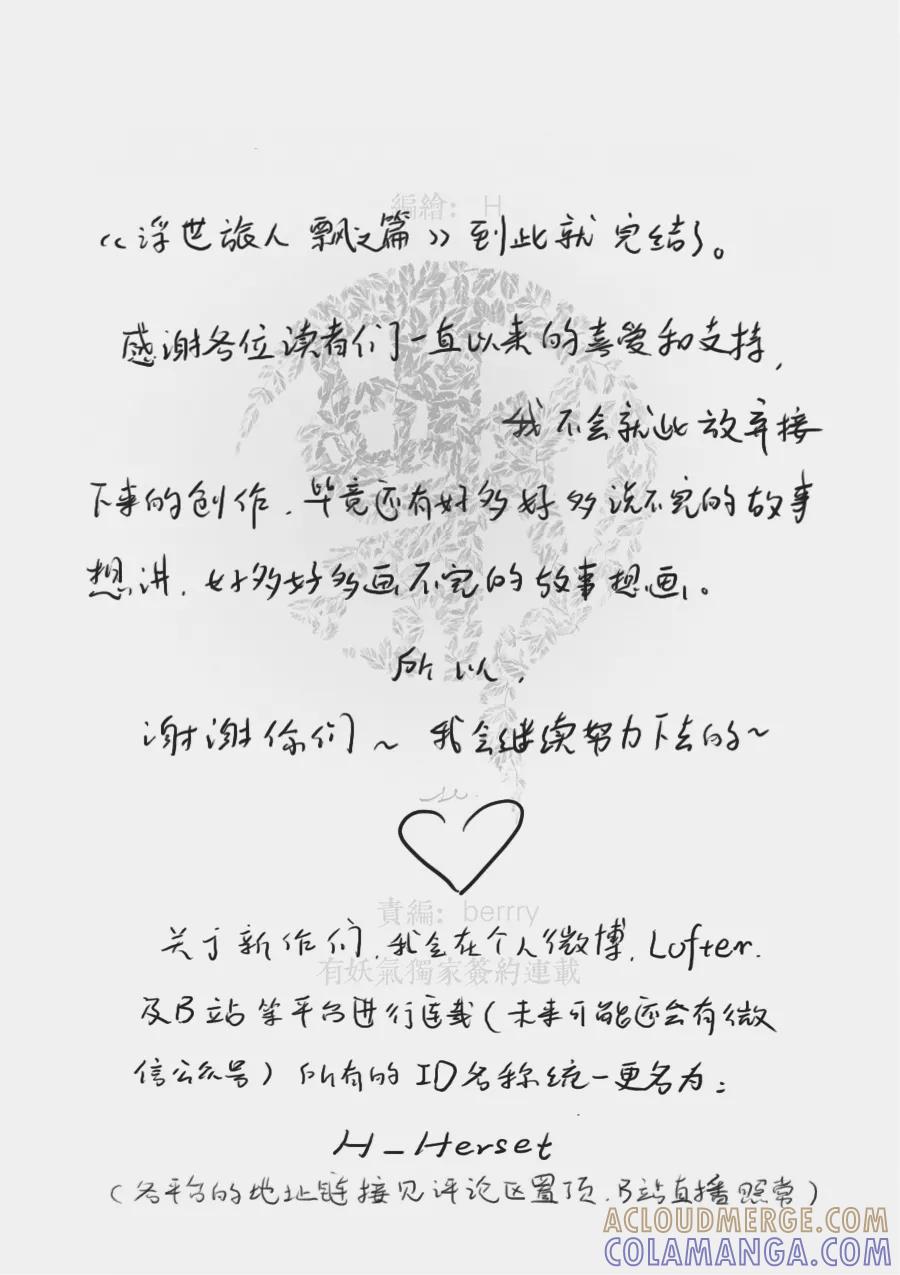 編繪： H
《浮世旅人 飘之篇》到此就 完结了。
感谢各位读者们一直以来的喜爱和支持,
我不会就此放弃接
下来的创作, 毕竟还有好多好多说不完的故事
想讲, 好多好多画不完的故事想画。
所以,
谢谢你们~ 我会继续努力下去的~
責編： berrry
关于新作们, 我会在个人微博, Lofter,
有妖氣獨家簽約連載
及B站等平台进行连载(未来可能还会有微
信公众号) 所有的ID名称统一更名为:
H_Herset
(各平台的地址链接见评论区置顶, B站直播照常)
ACLOUDMERGE.COM
COLAMANGA.COM